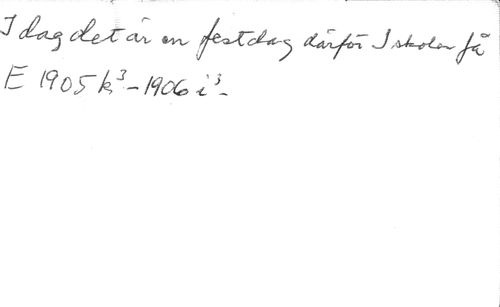 I dag det är en festdag därför I skolen få
E 1905 k³-1906 i³-